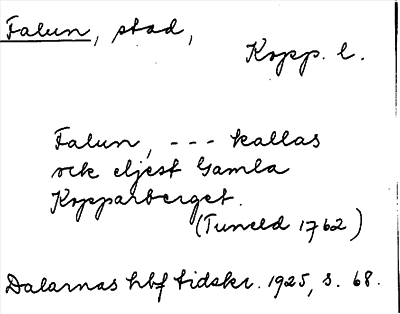 Falun, stad,
Kopp. l.
Falun, --- kallas
ock eljest Gamla
Kopparberget.
(Tuneld 1762)
Dalarnas hbf tidskr. 1925, s. 68.